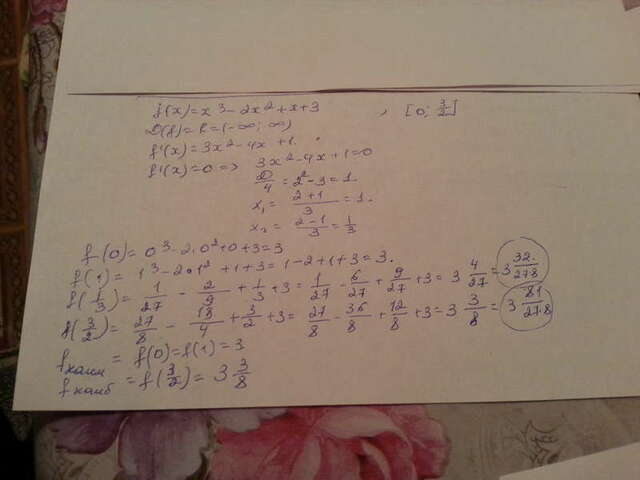 f(x)=x³-2x²+x+3 , [0; 3/2]
D(f)=R=(-∞; ∞)
f'(x)=3x²-4x+1.
f'(x)=0 => 3x²-4x+1=0
D/4=2²-3=1.
x₁= (2+1)/3 =1.
x₂= (2-1)/3 = 1/3
f(0)=0³-2·0²+0+3=3
f(1)=1³-2·1²+1+3=1-2+1+3=3.
f(1/3)= 1/27 - 2/9 + 1/3 +3= 1/27 - 6/27 + 9/27 +3=3 4/27 =3 32/27·8
f(3/2)= 27/8 - 18/4 + 3/2 +3= 27/8 - 36/8 + 12/8 +3=3 3/8 =3 81/27·8
fнаим = f(0)=f(1)=3
fнаиб =f(3/2)= 3 3/8